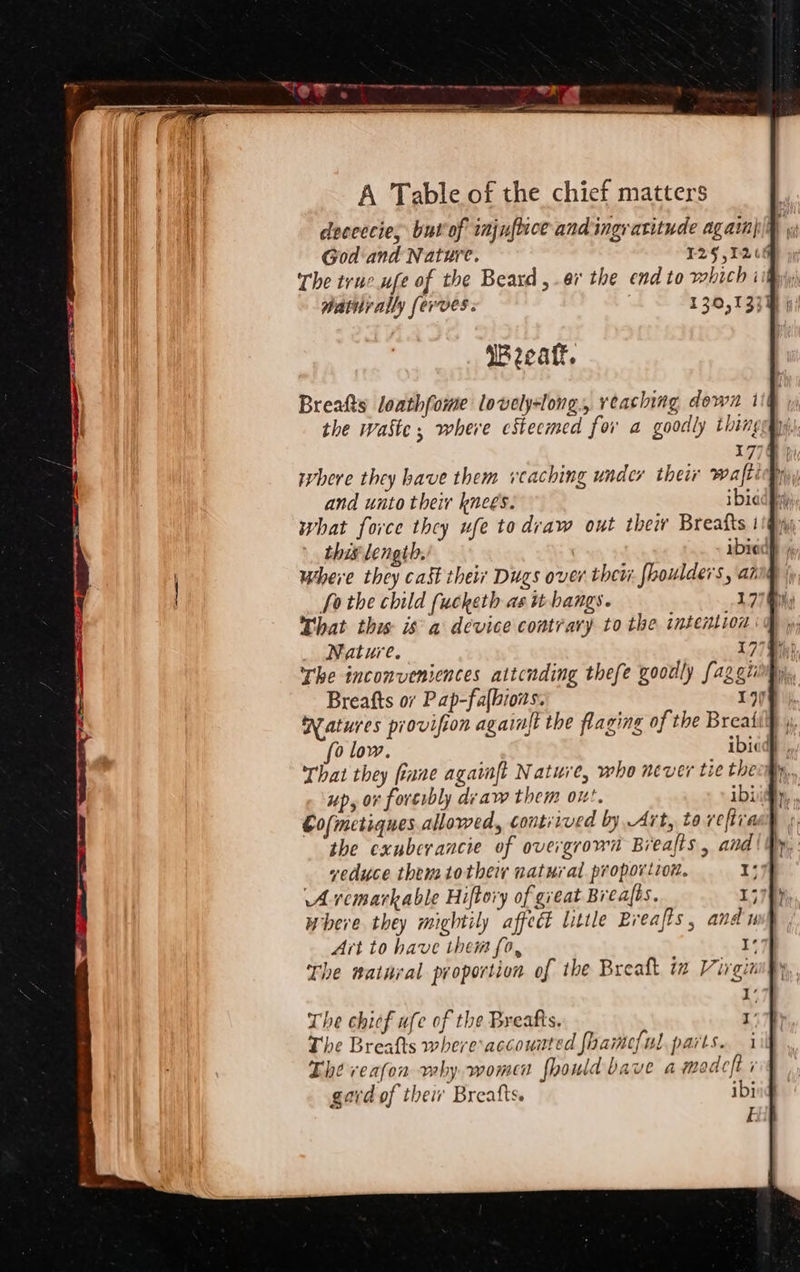 A Table of the chief matters
dececcie, but of injuſtice and ingratitude again
God and Nature. 125,126
The true uſe of the Beard, or the end to which i
naturally ſerves. 130,131
Breaſt.
Breaſts loathſome lovely-long, reaching down
the waſte; where eſteemed for a goodly thing
177
where they have them reaching under their waſt
and unto their knees. ibid
what force they uſe to draw out their Breaſts
this length. ibid
where they caſt their Dugs over their ſhoulders, an
ſo the child ſucketh as it hangs. 177
That this is a device contrary to the intention
Nature. 177
The inconveniences attending theſe goodly ſagg
Breaſts or Pap-faſhions.
Natures proviſion againſt the flaging of the Breaſ
ſo low. ibid
That they ſinne againſt Nature, who never tie the
up, or forcibly draw them out. ibi
Coſmetiques allowed, contrived by Art, to reſtra
the exuberancie of overgrown Breaſts, and
reduce them to their natural proportion.
A remarkable Hiſtory of great Breaſts.
where they mightily affect little Breaſts, and
Art to have them ſo,
The natural proportion of the Breaſt in Virgin
The chief uſe of the Breaſts.
The Breaſts where accounted ſhameful parts. i
The reaſon why women ſhould have a modeſt
gard of their Breaſts. ibi